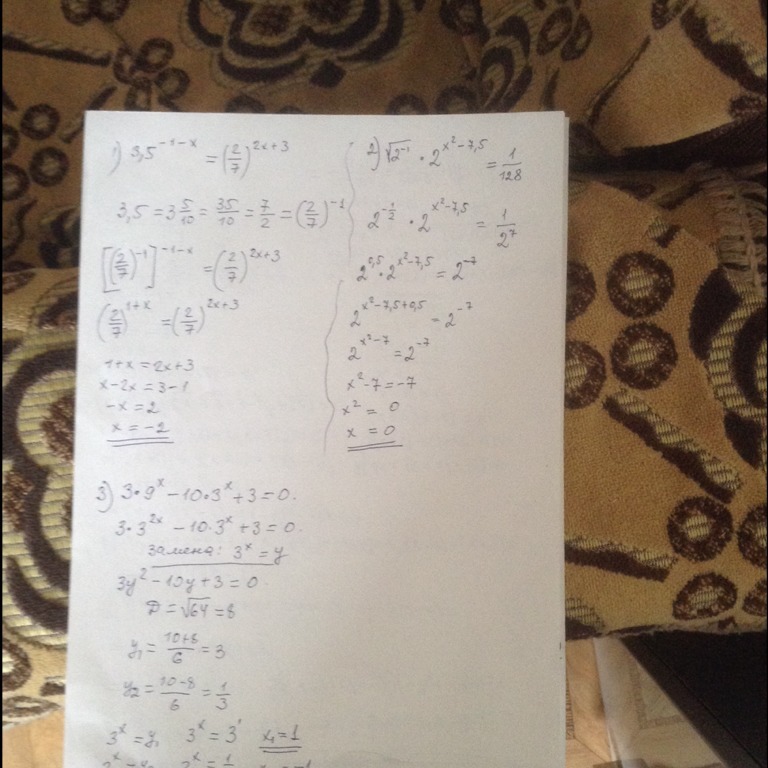 1) 3,5^(-1-x) = (2/7)^(2x+3)
3,5 = 3 5/10 = 35/10 = 7/2 = (2/7)^(-1)
[(2/7)^(-1)]^(-1-x) = (2/7)^(2x+3)
(2/7)^(1+x) = (2/7)^(2x+3)
1+x = 2x+3
x-2x = 3-1
-x = 2
x = -2
2) √(2^(-1)) · 2^(x²-7,5) = 1/128
2^(-1/2) · 2^(x²-7,5) = 1/2^7
2^(0,5) · 2^(x²-7,5) = 2^(-7)
2^(x²-7,5+0,5) = 2^(-7)
2^(x²-7) = 2^(-7)
x²-7 = -7
x² = 0
x = 0
3) 3·9^x - 10·3^x + 3 = 0.
3·3^(2x) - 10·3^x + 3 = 0.
замена: 3^x = y
3y² - 10y + 3 = 0.
D = √64 = 8
y₁ = (10+8)/6 = 3
y₂ = (10-8)/6 = 1/3
3^x = y₁ 3^x = 3^1 x₁ = 1